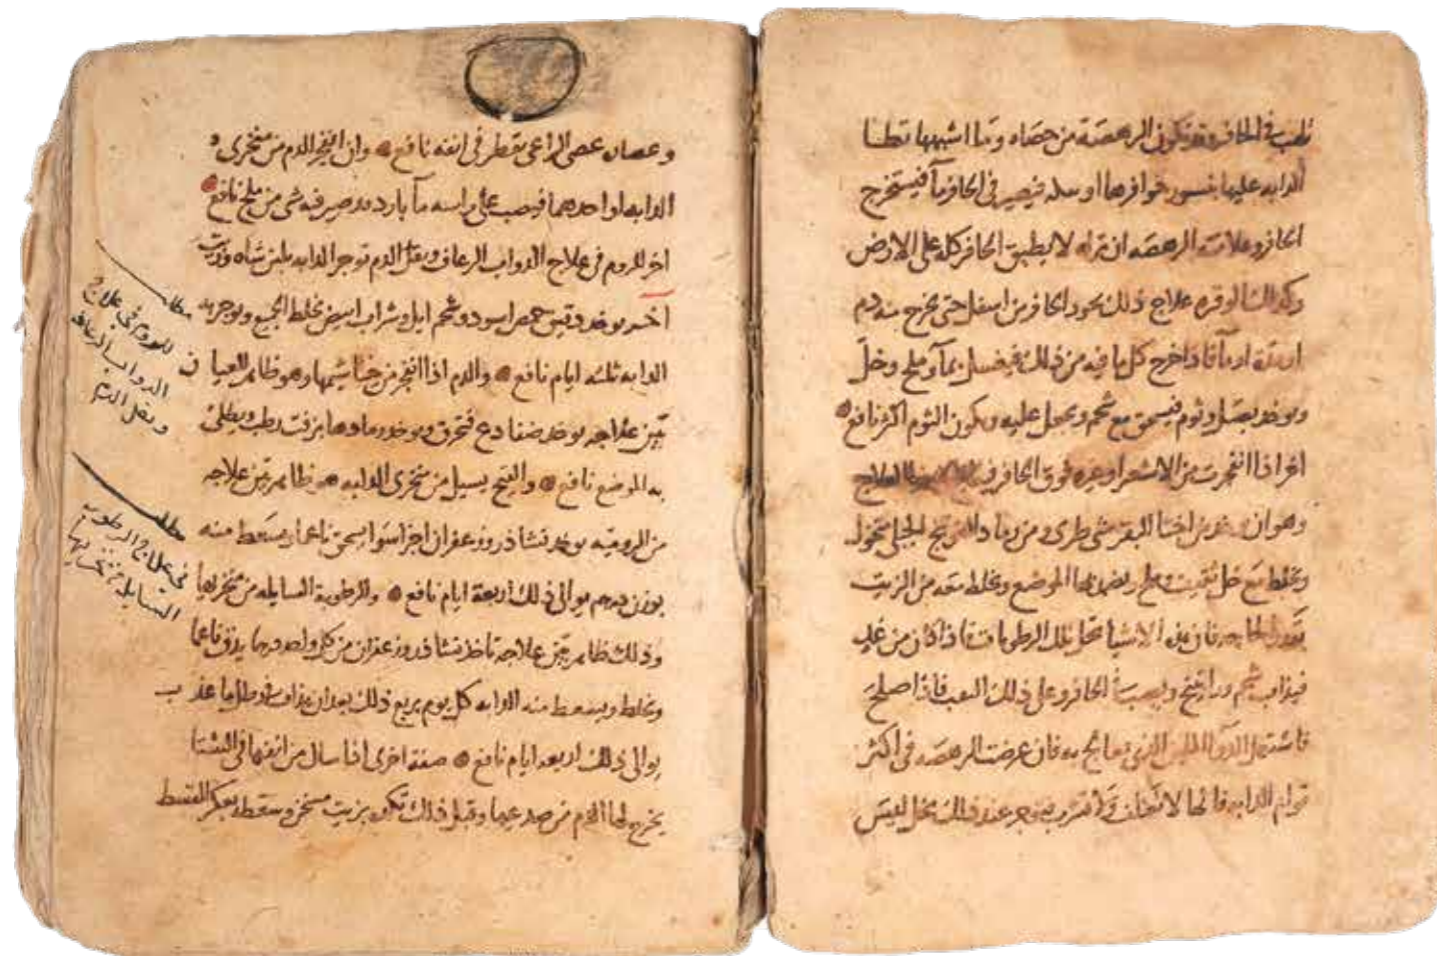 في الحافر وقد تكون الرهصة من حصاه وما اشبهها تطا
الدابه عليها بنسور حوافرها او سله فيصير في الحافر مآ فيستخرج
الحافر وعلامة الرهصه ان تراه لا يطبق الحافر كله على الارض
وكذلك الوقره علاج ذلك يحود الحافر من اسفل حتى يخرج منه دم
او مدة او مآ فاذا خرج كل ما فيه من ذلك فيغسل بمآ وملح وخل
ويوخد بصل وثوم فيسحق مع شحم ويجعل عليه ويكون الثوم اكثر نافع
اخر اذا انفجرت من الاشعر او غيره فوق الحافر العلاج
وهو ان من اخثا البقر شي طري ومن رماد الجبلي منخول
ويخلط مع خل ثقيف وملح ويضمد بها الموضع ويخلط معه من الزيت
بقدر الحاجه فان هذه الاشيآ تحلل تلك الرطوبات فاذا كان من غد
فيذاب شحم وراتينج ويصب في الحافر وعلى ذلك النقب فاذا اصلح
فاستعمل الدوآ الملين الذي يعالج به فان عرضت الرهصه في اكثر
قوام الدابه فانها لا عند ذلك بخل ليس
وعصاره عصى الراعي يقطر في انفه نافع وان انفجر الدم من منخري
الدابه او احدهما فيصب على راسه مآ بارد قد صير فيه شي من ملح نافع
اخر للروم في علاج الدواب الرعاف وبقل الدم توجر الدابه بلبن شاه وزيت
آخر يوخد دقيق حمص اسود وشحم ايل وشراب ابيض يخلط الجميع ويوجر به
الدابه ثلثه ايام نافع والدم اذا انفجر من خياشيمها وهو ظاهر للعيان
بين علاجه يوخد ضفادع فتحرق ويوخد رمادها بزفت رطب ويطلى
به الموضع نافع والقيح يسيل من منخري الدابه هو ظاهر بين علاجه
من الروميه يوخد نشا ذرو زعفران اجزا سوا يسحق ناعما ويسعط منه
بوزن درهم يوالى ذلك اربعة ايام نافع وللرطوبة السايله من منخريها
وذلك ظاهر بين علاجه تاخذ نشا ذرو زعفران من كل واحد درهما يدق ناعما
ويخلط ويسعط منه الدابه كل يوم بربع ذلك بعد ان يذاف في رطل ما عذب
يوالى ذلك اربعه ايام نافع صفة اخرى اذا سال من انفها في الشتا
يخرج لها الدم من صدغيها وقبل ذلك تكمد بزيت مسخن وسعطه بعكر القسط
مطلب
للروم في علاج
الدواب الرعاف
وبقل الدم
مطلب
في علاج الرطوبه
السايله من منخريها